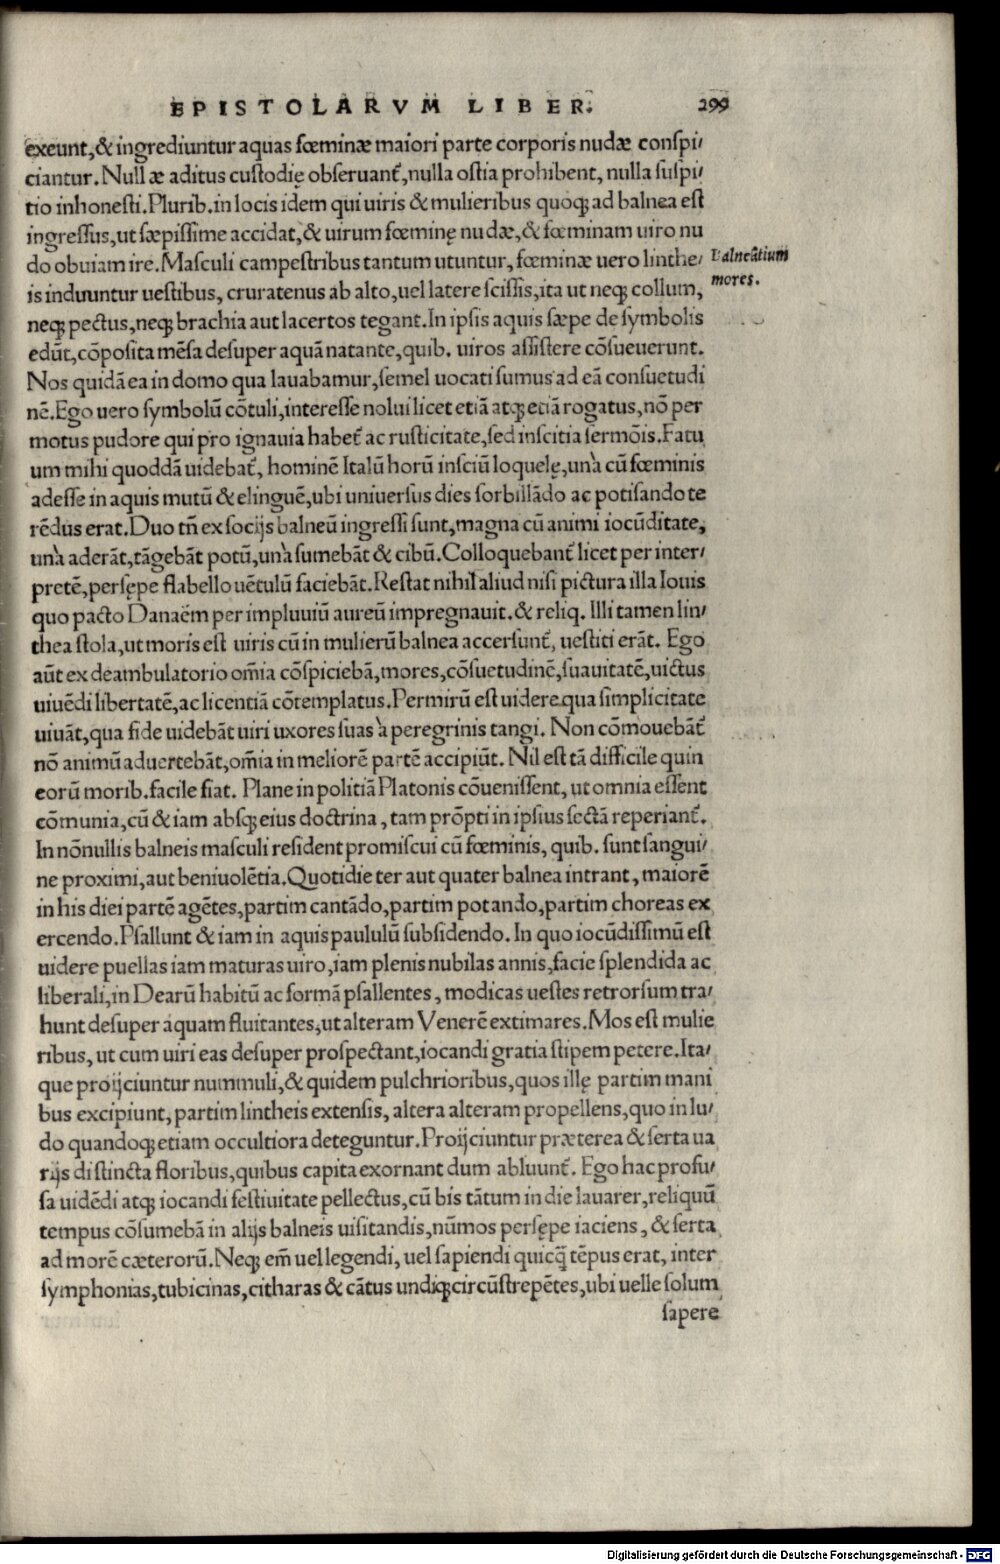 EPISTOLARVM LIBER. 299
exeunt, & ingrediuntur aquas fœminæ maiori parte corporis nudæ conspi/
ciantur. Nullæ aditus custodię obseruant᷑, nulla ostia prohibent, nulla suspi/
tio inhonesti. Plurib. in locis idem qui uiris & mulieribus quoqꝫ ad balnea est
ingressus, ut sæpissime accidat, & uirum fœminę nudæ, & fœminam uiro nu
do obuiam ire. Masculi campestribus tantum utuntur, fœminæ uero linthe/
Balneātium
mores.
is induuntur uestibus, cruratenus ab alto, uel latere scissis, ita ut neqꝫ collum,
neqꝫ pectus, neqꝫ brachia aut lacertos tegant. In ipsis aquis sæpe de symbolis
edūt, cōposita mēsa desuper aquā natante, quib. uiros assistere cōsueuerunt.
Nos quidā ea in domo qua lauabamur, semel uocati sumus ad eā consuetudi
nē. Ego uero symbolū cōtuli, interesse nolui licet etiā atqꝫ etiā rogatus, nō per
motus pudore qui pro ignauia habet᷑ ac rusticitate, sed inscitia sermōis. Fatu
um mihi quoddā uidebat᷑, hominē Italū horū insciū loquelę, unà cū fœminis
adesse in aquis mutū & elinguē, ubi uniuersus dies sorbillādo ac potisando te
rēdus erat. Duo tñ ex socijs balneū ingressi sunt, magna cū animi iocūditate,
unà aderāt, tāgebāt potū, unà sumebāt & cibū. Colloquebant᷑ licet per inter/
pretē, persępe flabello uētulū faciebāt. Restat nihil aliud nisi pictura illa Iouis
quo pacto Danaëm per impluuiū aureū impregnauit. & reliq. Illi tamen lin/
thea stola, ut moris est uiris cū in mulierū balnea accersunt᷑, uestiti erāt. Ego
aūt ex deambulatorio om̄ia cōspiciebā, mores, cōsuetudinē, suauitatē, uictus
uiuēdi libertatē, ac licentiā cōtemplatus. Permirū est uidere qua simplicitate
uiuāt, qua fide uidebāt uiri uxores suas à peregrinis tangi. Non cōmouebāt᷑
nō animū aduertebāt, om̄ia in meliorē partē accipiūt. Nil est tā difficile quin
eorū morib. facile fiat. Plane in politiā Platonis cōuenissent, ut omnia essent
cōmunia, cū & iam absqꝫ eius doctrina, tam prōpti in ipsius sectā reperiant᷑.
In nōnullis balneis masculi resident promiscui cū fœminis, quib. sunt sangui/
ne proximi, aut beniuolētia. Quotidie ter aut quater balnea intrant, maiorē
in his diei partē agētes, partim cantādo, partim potando, partim choreas ex
ercendo. Psallunt & iam in aquis paululū subsidendo. In quo iocūdissimū est
uidere puellas iam maturas uiro, iam plenis nubilas annis, facie splendida ac
liberali, in Dearū habitū ac formā psallentes, modicas uestes retrorsum tra/
hunt desuper aquam fluitantes, ut alteram Venerē extimares. Mos est mulie
ribus, ut cum uiri eas desuper prospectant, iocandi gratia stipem petere. Ita/
que proijciuntur nummuli, & quidem pulchrioribus, quos illę partim mani
bus excipiunt, partim lintheis extensis, altera alteram propellens, quo in lu/
do quandoqꝫ etiam occultiora deteguntur. Proijciuntur præterea & serta ua
rijs distincta floribus, quibus capita exornant dum abluunt᷑. Ego hac profu/
sa uidēdi atqꝫ iocandi festiuitate pellectus, cū bis tātum in die lauarer, reliquū
tempus cōsumebā in alijs balneis uisitandis, nūmos persępe iaciens, & serta
ad morē cæterorū. Neqꝫ em̄ uel legendi, uel sapiendi quicq̃ tēpus erat, inter
symphonias, tubicinas, citharas & cātus undiqꝫ circūstrepētes, ubi uelle solum
sapere
Digitalisierung gefördert durch die Deutsche Forschungsgemeinschaft - DFG